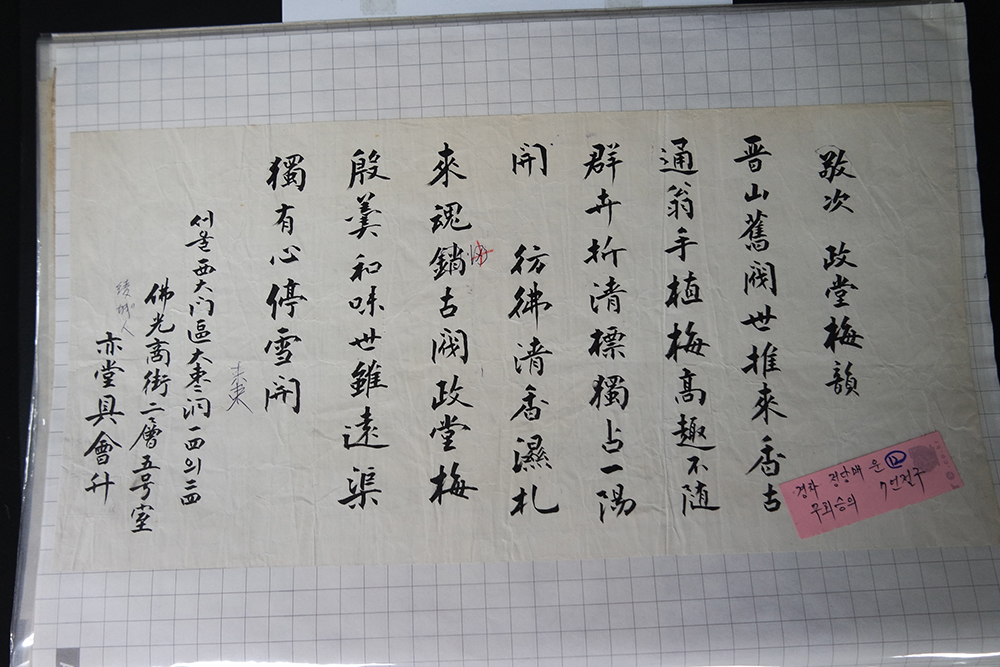 敬次 政堂梅韻
晋山舊閥世推來香古
通翁手植梅高趣不随
群卉折清標獨占一陽
開 彷彿清香濕札
來魂銷古閥政堂梅
殷羹和味世雖遠渠
獨有心停雪開
서울西大门區大棗洞一四의三四
佛光商街二層五号室
綾城人
亦堂具會升
棗
경차 정당매 운 ⑫
구회승의 7언절구